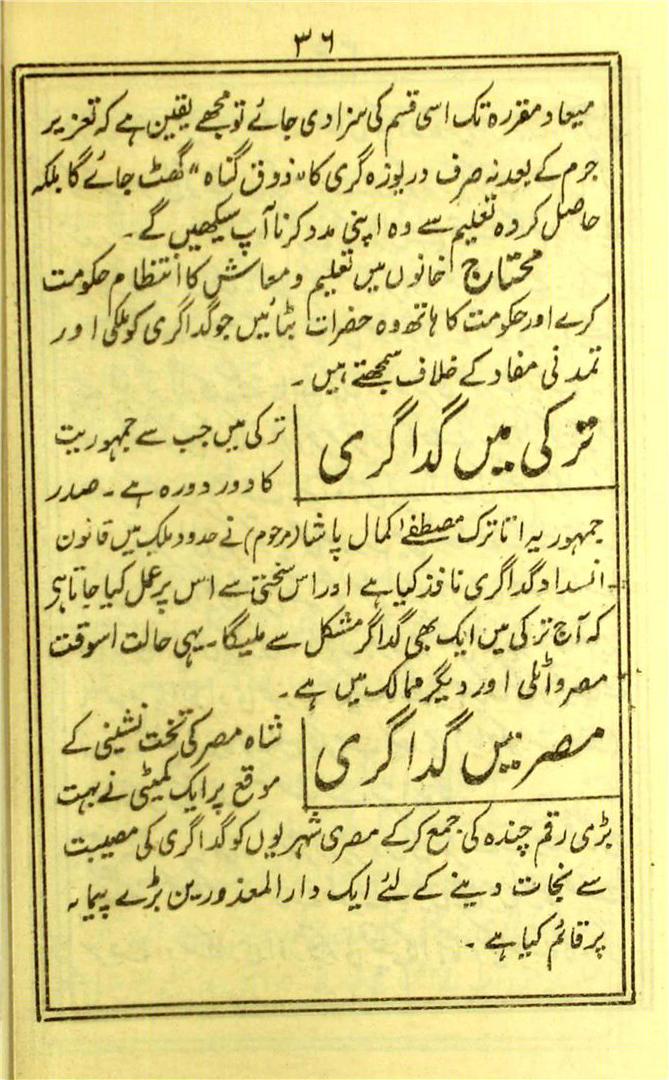 ۳۶
میعاد مقررہ تک اسی قسم کی سزا دی جائے تو مجھے یقین ہے کہ تعزیر
جرم کے بعد نہ صرف دریوزہ گری کا "ذوق گناہ" گھٹ جائے گا بلکہ
حاصل کردہ تعلیم سے وہ اپنی مدد کرنا آپ سیکھیں گے۔
محتاج خانوں میں تعلیم و معاش کا انتظام حکومت
کرے اور حکومت کا ہاتھ وہ حضرات بٹائیں جو گداگری کو ملکی اور
تمدنی مفاد کے خلاف سمجھتے ہیں۔
ترکی میں گداگری
ترکی میں جب سے جمہوریت
کا دور دورہ ہے۔ صدر
جمہوریہ اتاترک مصطفےٰ کمال پاشا (مرحوم) نے حدود ملک میں قانون
انسداد گداگری نافذ کیا ہے اور اس سختی سے اس پر عمل کیا جاتا ہے
کہ آج ترکی میں ایک بھی گداگر مشکل سے ملیگا۔ یہی حالت اسوقت
مصر واٹلی اور دیگر ممالک میں ہے۔
مصر میں گداگری
شاہ مصر کی تخت نشینی کے
موقع پر ایک کمیٹی نے بہت
بڑی رقم چندہ کی جمع کر کے مصری شہریوں کو گداگری کی مصیبت
سے نجات دینے کے لئے ایک دار المعذورین بڑے پیمانہ
پر قائم کیا ہے۔